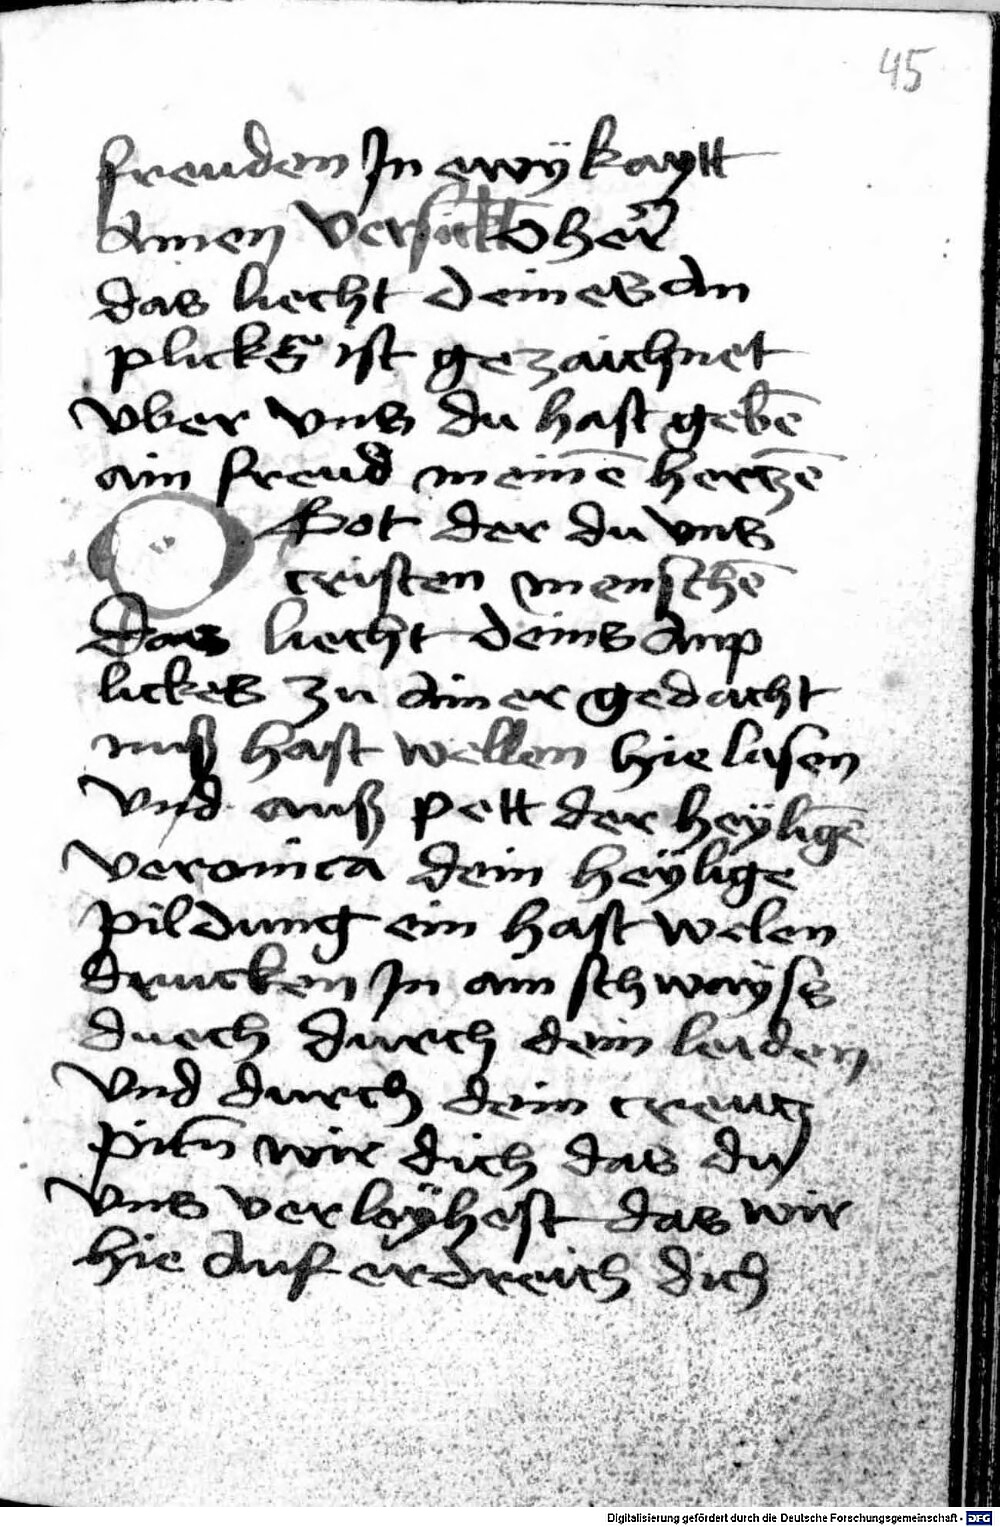 45
freuden Jn ewÿkaytt
Amen Versickl O her
das liecht deines An
plickß ist gezaichnet
vber vns du hast gebē
ain freud meinē hertzē
O Got der du vns
cristen menschē
Das liecht deins Anp
lickes zu Ainer gedacht
nuß hast wellen hie lasen
Vnd auß pett der heÿligē
veronica dein heÿlige
pildung ein hast welen
drucken Jn ain schwaÿss
duech durch dein leiden
Vnd durch dein creutz
pitn̄ wir dich das du
Vns verleÿhest das wir
hie Auf erdreich dich
Digitalisierung gefördert durch die Deutsche Forschungsgemeinschaft - DFG